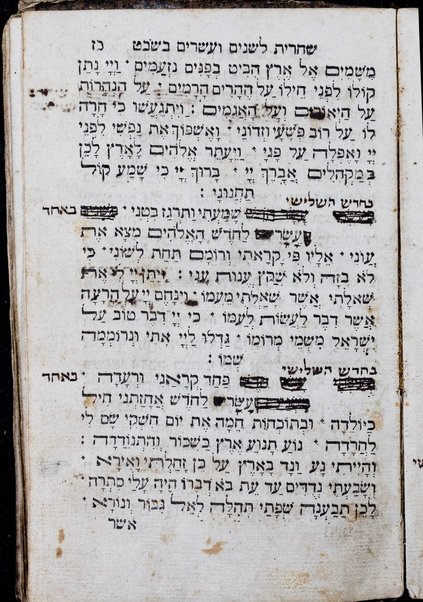 שחרית לשנים ועשרים בשבט כז
משמים אל ארץ הביט בפנים נזעמים · וייי נתן
קולו לפני חילו על ההרים הרמים · על הנהרות
על היאורים ועל האגמים : ויתגעשו כי חרה
לו על רוב פשעי וזדוני · ואשפוך את נפשי לפני
יי ואפלה על פני · ויעתר אלהים לארץ לכן
במקהלים אברך יי · ברוך יי כי שמע קול
תחנוני :
בחדש השלישי
באחד שמעתי ותרגז בטני ·
עשר לחדש האלהים מצא את
עוני · אליו פי קראתי ורומם תחת לשוני · כי
לא בזה ולא שקץ ענות עני : ויתן יי לי את
שאלתי אשר שאלתי מעמו · וינחם יי על הרעה
אשר דבר לעשות לעמו · כי יי דבר טוב על
ישראל משמי מרומו · גדלו ליי אתי ונרוממה
שמו :
בחדש השלישי
באחד פחד קראני ורעדה ·
עשר לחדש אחזתני חיל
כיולדה · ובתוכחות חמה את יום חשקי שם לי
לחרדה · נוע תנוע ארץ כשכור והתנודדה :
והייתי נע ונד בארץ על כן זחלתי ואירא ·
ושבעתי נדדים עד עת בא דברו היה עלי סתרה
לכן תבענה שפתי תהלה לאל גבור ונורא ·
אשר